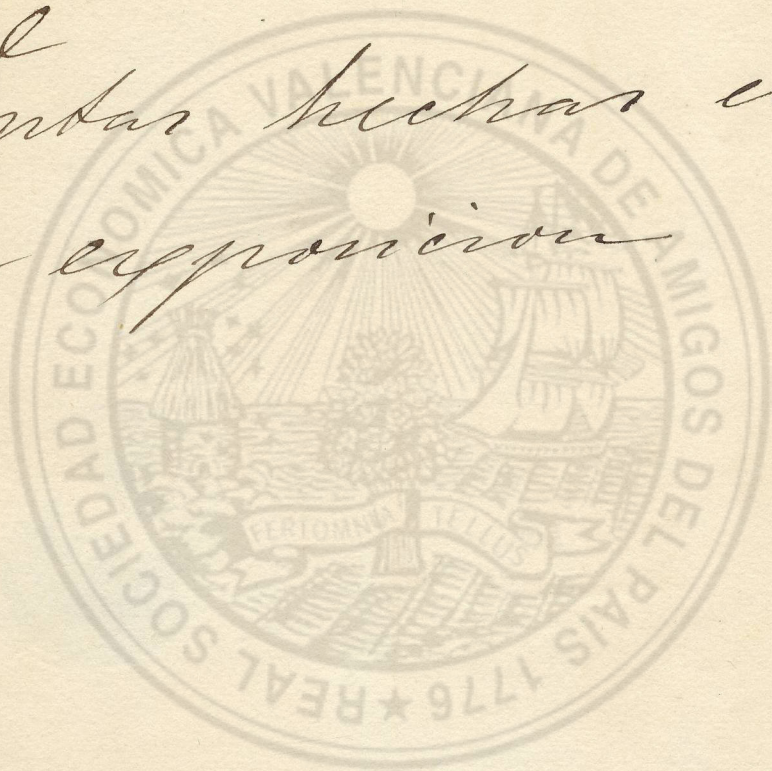 hechas
exposicion
REAL SOCIEDAD ECONOMICA VALENCIANA DE AMIGOS DEL PAIS 1776 ★
FERT OMNIA TELLUS